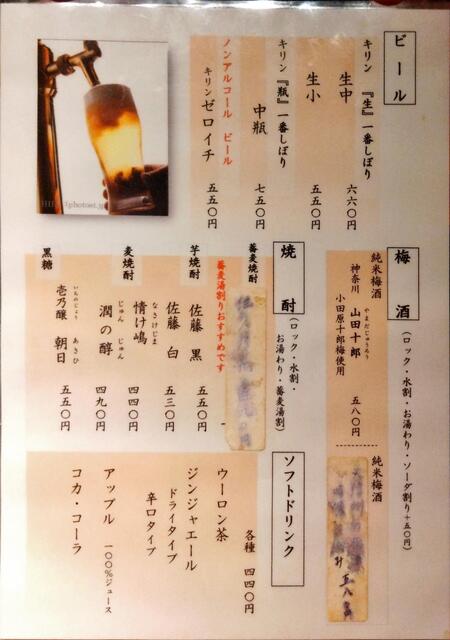 ビール
キリン 『生』一番しぼり
生中 六六〇円
生小 五五〇円
キリン 『瓶』一番しぼり
中瓶 七五〇円
ノンアルコール ビール
キリンゼロイチ 五五〇円
梅酒
(ロック・水割・お湯わり・ソーダ割り+五〇円)
純米梅酒
神奈川 山田十郎 やまだじゅうろう
小田原十郎梅使用 五八〇円
純米梅酒
焼酎
(ロック・水割・
お湯わり・蕎麦湯割)
蕎麦焼酎
蕎麦湯割りおすすめです
芋焼酎
佐藤 黒 五五〇円
佐藤 白 五三〇円
麦焼酎
情け嶋 なさけじま 四四〇円
潤の醇 じゅん じゅん 四九〇円
黒糖
壱乃醸 朝日 いちのじょう あさひ 五五〇円
ソフトドリンク
各種 四四〇円
ウーロン茶
ジンジャエール
ドライタイプ
辛口タイプ
アップル 一〇〇%ジュース
コカ・コーラ